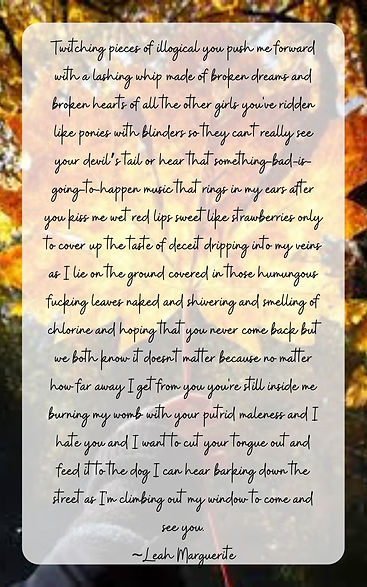 Twitching pieces of illogical you push me forward
with a lashing whip made of broken dreams and
broken hearts of all the other girls you've ridden
like ponies with blinders so they can't really see
your devil's tail or hear that something-bad-is-
going-to-happen music that rings in my ears after
you kiss me wet red lips sweet like strawberries only
to cover up the taste of deceit dripping into my veins
as I lie on the ground covered in those humungous
fucking leaves naked and shivering and smelling of
chlorine and hoping that you never come back but
we both know it doesn't matter because no matter
how far away I get from you you're still inside me
burning my womb with your putrid maleness and I
hate you and I want to cut your tongue out and
feed it to the dog I can hear barking down the
street as I'm climbing out my window to come and
see you.
~Leah Marguerite